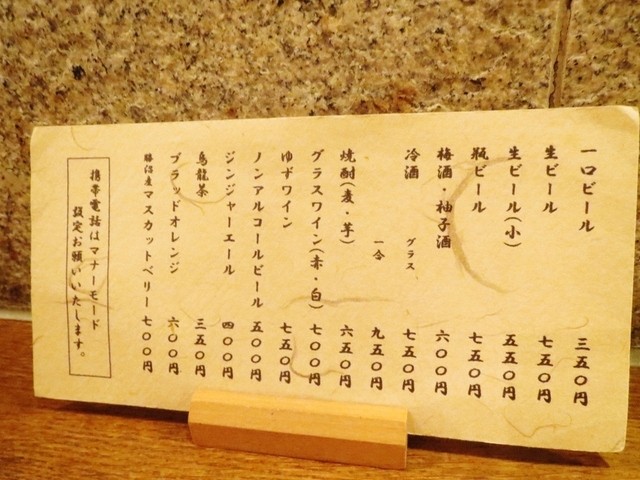 一口ビール 三五〇円
生ビール 七五〇円
生ビール(小) 五五〇円
瓶ビール 七五〇円
梅酒・柚子酒 六〇〇円
冷酒 グラス 七五〇円
一合 九五〇円
焼酎(麦・芋) 六五〇円
グラスワイン(赤・白) 七〇〇円
ゆずワイン 七五〇円
ノンアルコールビール 五〇〇円
ジンジャーエール 四〇〇円
烏龍茶 三五〇円
ブラッドオレンジ 六〇〇円
勝沼産マスカットベリー 七〇〇円
携帯電話はマナーモード
設定お願いいたします。